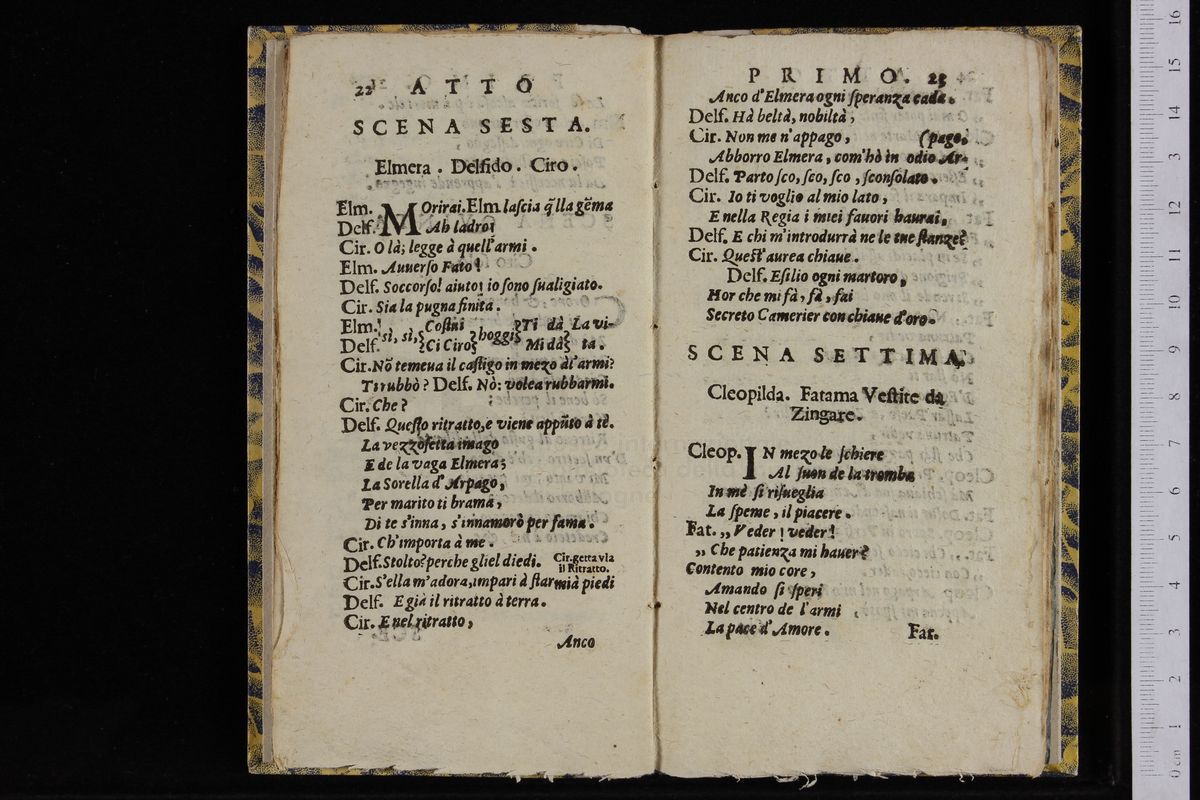 22 ATTO
SCENA SESTA.
Elmera. Delfido. Ciro.
Elm. MOrirai. Elm. laſcia q̃lla gẽma
Delf. Ah ladro!
Cir. O là; legge à quell'armi.
Elm. Auuerſo Fato!
Delf. Soccorſo! aiuto! io ſono ſualigiato.
Cir. Sia la pugna finita.
Elm. ſì, ſì, Coſtui hoggi Ti dà La vi-
Delf. Ci Ciro Mi dà ta.
Cir. Nõ temeua il caſtigo in mezo àl'armi?
Ti rubbò? Delf. Nò: volea rubbarmi.
Cir. Che?
Delf. Queſto ritratto, e viene appũto à tè.
La vezzoſetta imago
E de la vaga Elmera;
La Sorella d'Arpago,
Per marito ti brama,
Di te s'inna, s'innamorò per fama.
Cir. Ch'importa à me.
Delf. Stolto? perche gliel diedi. Cir. getta via
il Ritratto.
Cir. S'ella m'adora, impari à ſtarmià piedi
Delf. E già il ritratto à terra.
Cir. E nel ritratto,
Anco
PRIMO. 23
Anco d'Elmera ogni ſperanza cada.
Delf. Hà beltà, nobiltà,
Cir. Non me n'appago, (pago.
Abborro Elmera, com'hò in odio Ar-
Delf. Parto ſco, ſco, ſco, ſconſolato.
Cir. Io ti voglio al mio lato,
E nella Regia i miei fauori haurai,
Delf. E chi m'introdurrà ne le tue ſtanze?
Cir. Queſt'aurea chiaue.
Delf. Eſilio ogni martoro,
Hor che mi fà, fà, fai
Secreto Camerier con chiaue d'oro.
SCENA SETTIMA.
Cleopilda. Fatama Veſtite da
Zingare.
Cleop. IN mezo le ſchiere
Al ſuon de la tromba
In mè ſi riſueglia
La ſpeme, il piacere.
Fat. „ Veder! veder!
„ Che patienza mi hauer?
Contento mio core,
Amando ſi ſperi
Nel centro de l'armi
La pace d'Amore. Fat.